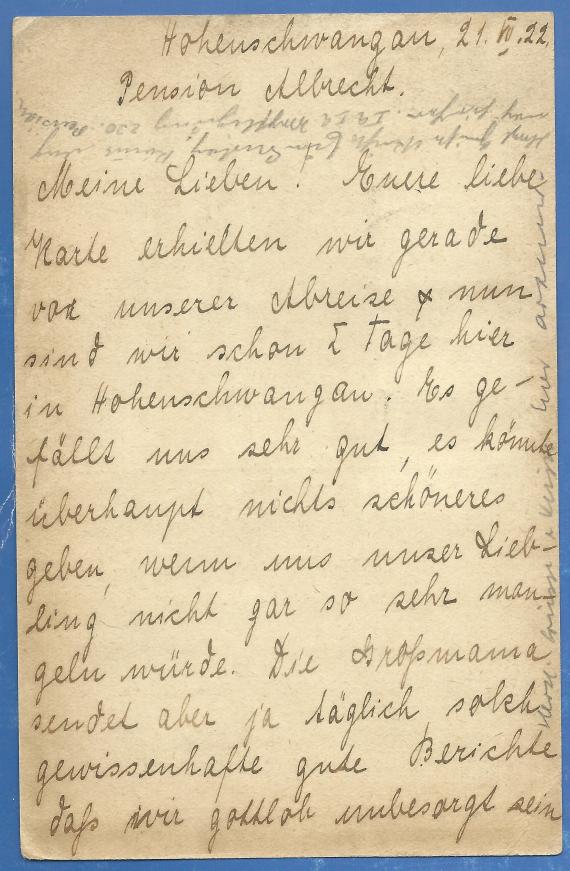 Hohenschwangau, 21. VII. 22.
Pension Albrecht.
Meine Lieben! Euere liebe
Karte erhielten wir gerade
vor unserer Abreise & nun
sind wir schon 2 Tage hier
in Hohenschwangau. Es ge-
fällt uns sehr gut, es könnte
überhaupt nichts schöneres
geben, wenn uns unser Lieb-
ling nicht gar so sehr man-
geln würde. Die Großmama
sendet aber ja täglich solch
gewissenhafte gute Berichte
daß wir gottlob unbesorgt sein
Pension